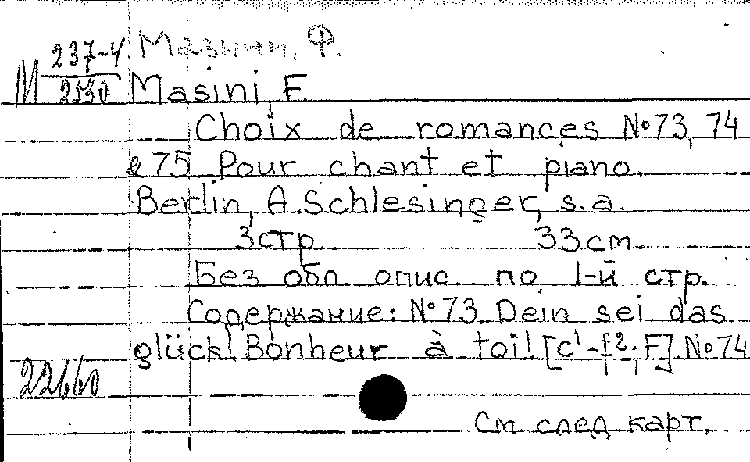 Мазини, Ф.
М 237-4/2530
Masini, F.
Choix de romances №73, 74
e 75 Pour chant et piano.
Berlin, A. Schlesinger, s. a.
3 стр. 33 см.
Без обл. опис. по 1-й стр.
Содержание: №73 Dein sei das
glück! Bonheur à toi! [c¹-f²; F]. №74
22660
См. след. карт.